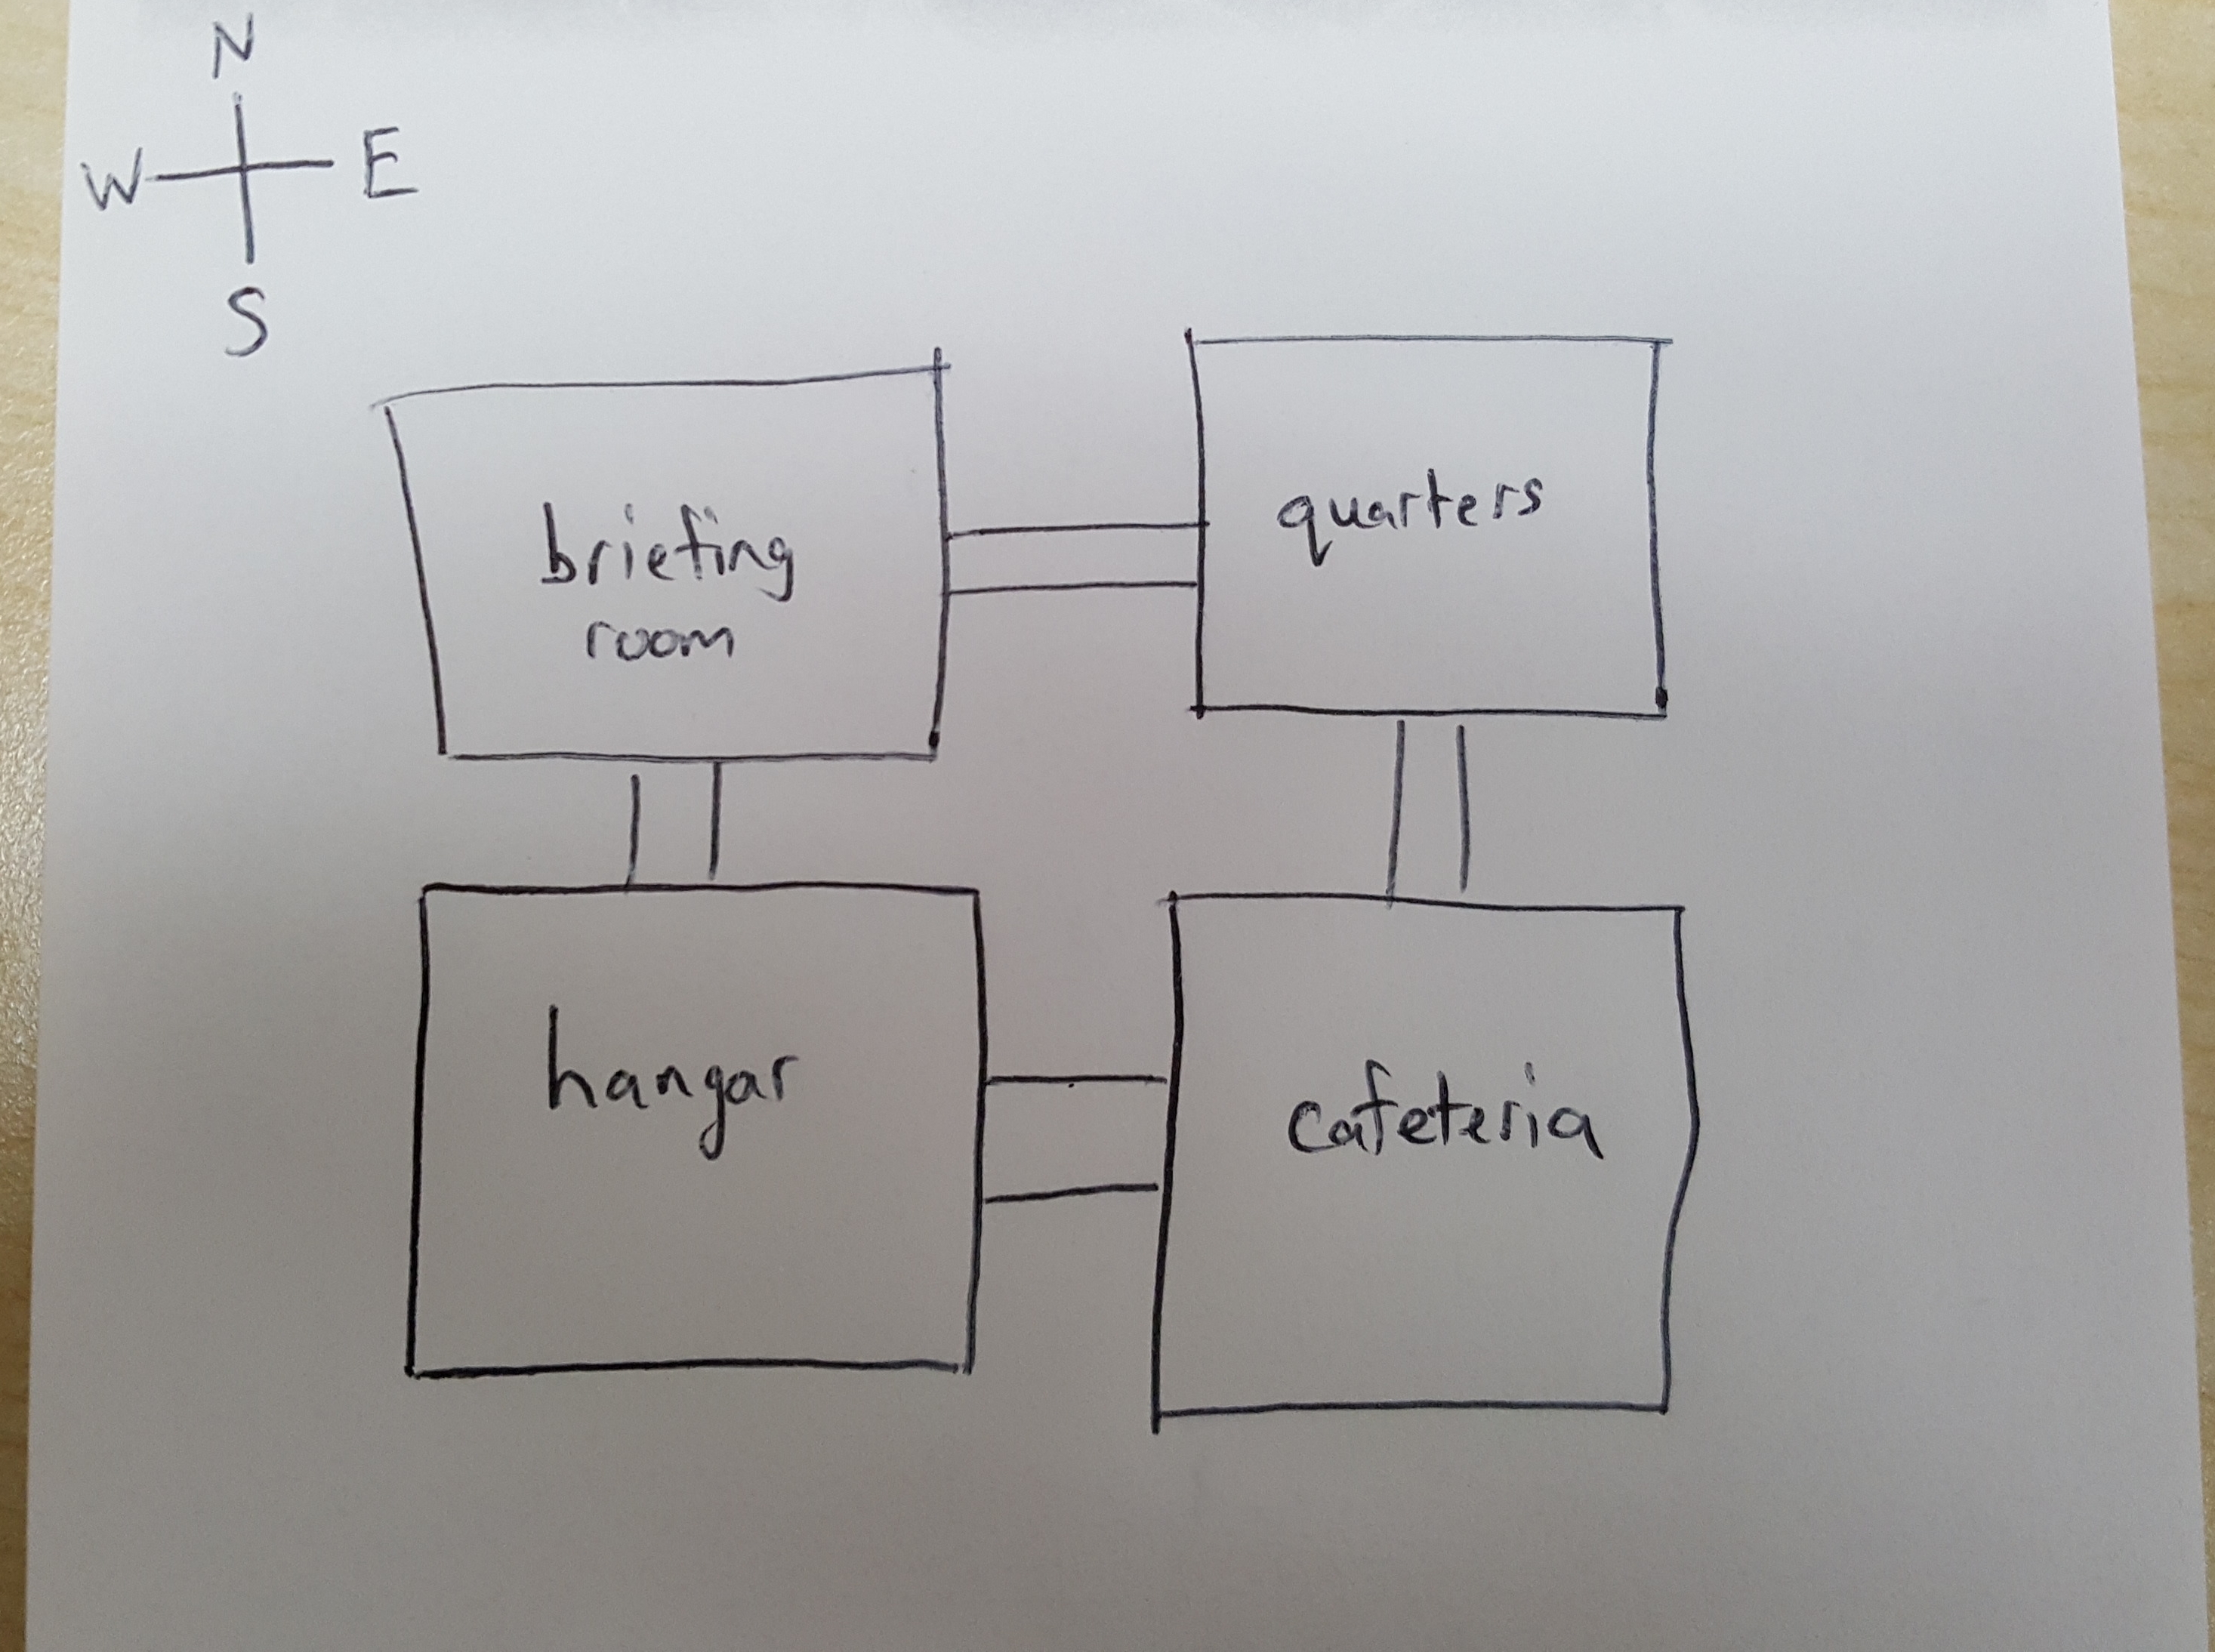 N
W E
S
briefing
room
quarters
hangar
cafeteria